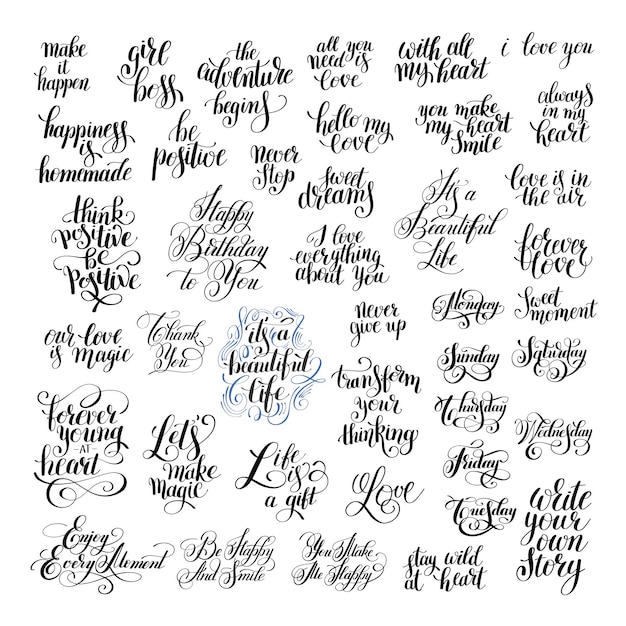 make
it
happen
girl
boss
the
adventure
begins
all you
need is
love
with all
my heart
i love you
happiness
is
homemade
be
positive
never
stop
hello my
love
you make
my heart
smile
always
in my
heart
sweet
dreams
think
positive
be
positive
Happy
Birthday
to You
I love
everything
about you
It's a
Beautiful
Life
love is in
the air
forever
love
our love
is magic
Thank
You
it's a
beautiful
life
never
give up
Monday
Sweet
moment
Sunday
Saturday
transform
your
thinking
forever
young
AT
heart
Let's
make
magic
Life
is
a gift
Love
Thursday
Wednesday
Friday
Tuesday
write
your
own
story
Enjoy
Every Moment
Be Happy
And Smile
You Make
Me Happy
stay wild
at heart